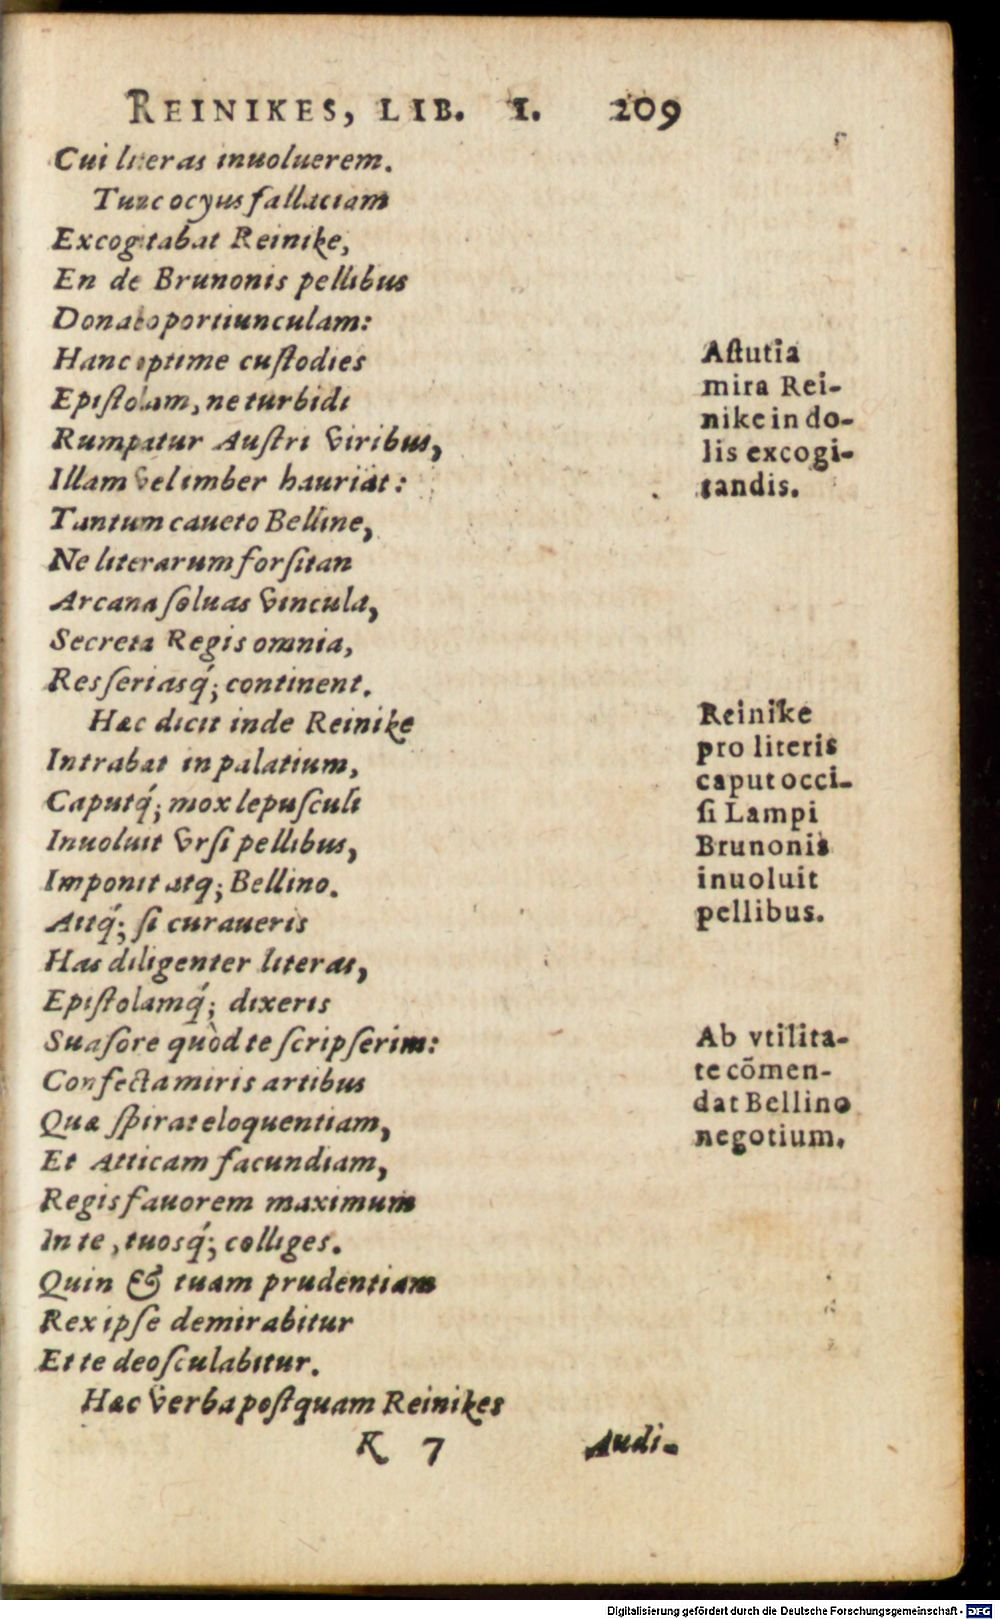 REINIKES, LIB. I. 209
Cui literas inuoluerem.
Tunc ocyus fallaciam
Excogitabat Reinike,
En de Brunonis pellibus
Donato portiunculam:
Hanc optime custodies
Epistolam, ne turbidi
Rumpatur Austri viribus,
Illam vel imber hauriat:
Tantum caueto Belline,
Ne literarum forsitan
Arcana soluas vincula,
Secreta Regis omnia,
Resseriasq́; continent.
Hæc dicit inde Reinike
Intrabat in palatium,
Caputq́; mox lepusculi
Inuoluit vrsi pellibus,
Imponit atq; Bellino.
Attq́; si curaueris
Has diligenter literas,
Epistolamq́; dixeris
Suasore quòd te scripserim:
Confecta miris artibus
Quæ spirat eloquentiam,
Et Atticam facundiam,
Regis fauorem maximum
In te, tuosq́; colliges.
Quin & tuam prudentiam
Rex ipse demirabitur
Et te deosculabitur.
Hæc verba postquam Reinikes
K 7 Audi-
Astutia
mira Rei-
nike in do-
lis excogi-
tandis.
Reinike
pro literis
caput occi-
si Lampi
Brunonis
inuoluit
pellibus.
Ab vtilita-
te cõmen-
dat Bellino
negotium.
Digitalisierung gefördert durch die Deutsche Forschungsgemeinschaft - DFG